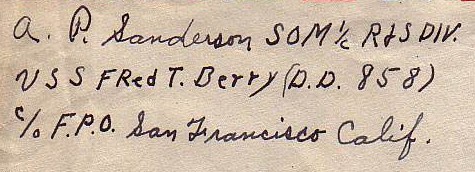 A. P. Sanderson SOM 1/c R&S DIV.
USS FRed T. Berry (D.D. 858)
c/o F.P.O. San Francisco Calif.